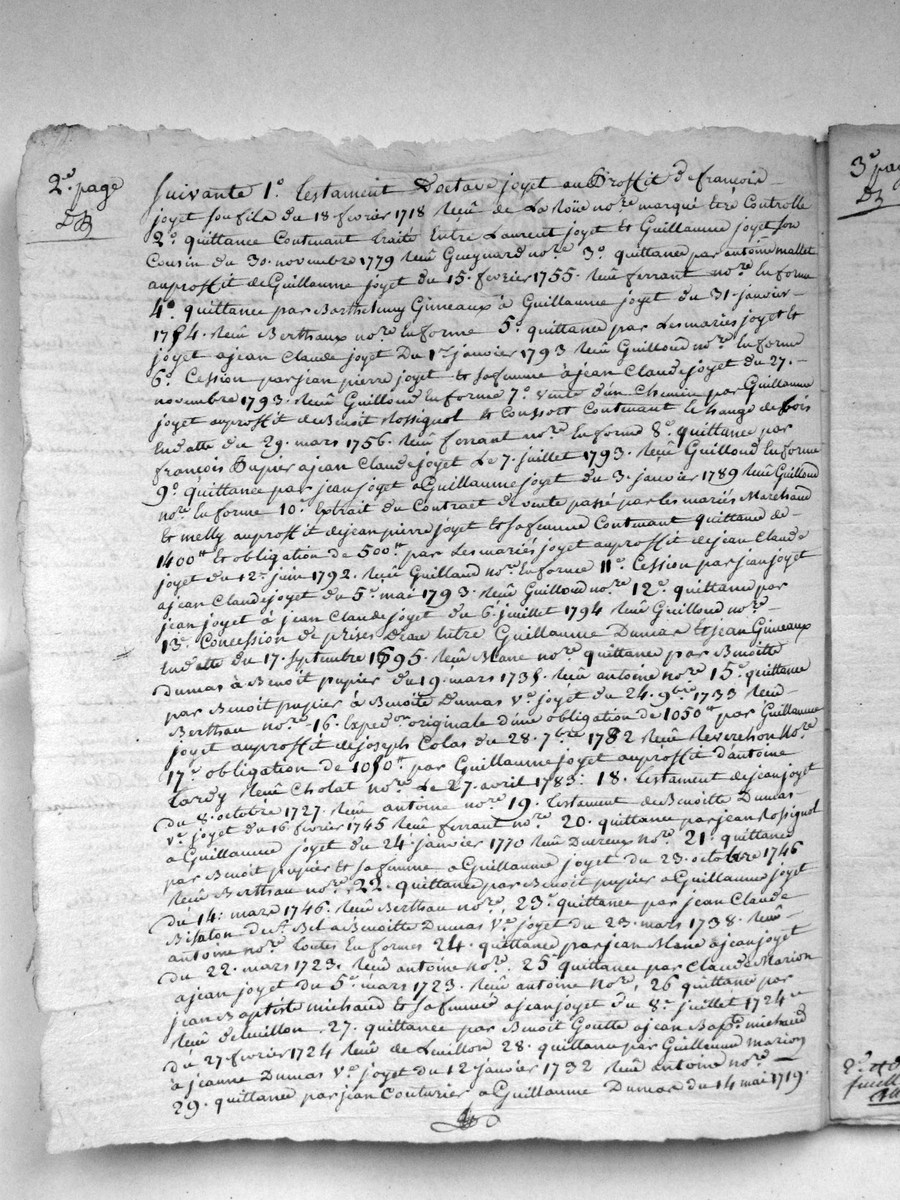 2e. page
DB
Suivante 1o. testament Doctave joyet au Proffit de francois
joyet son fils du 18 fevrier 1718 Reçû de La Roüe nore marqué etre Controllé
2o. quittance Contenant traité Entre Laurent joyet et Guillaume joyet son
Cousin du 30. novembre 1779 Reçû Gueynard nore. 3o. quittance par antoine mallet
au proffit de Guillaume joyet du 15. fevrier 1755. Reçû ferrant nore En forme
4o. quittance par Barthelemy Gimeaux à Guillaume joyet du 31. janvier
1754. Reçû Berthaux nore En forme 5o. quittance par Les mariés joyet et
joyet a jean Claude joyet Du 1er janvier 1793 Reçû Guilloud nore. En forme
6o. Cession par jean pierre joyet et sa femme à jean Claude joyet du 27.
novembre 1793. Reçû Guilloud En forme 7o. vente d'un Chemin par Guillaume
joyet au proffit de Benoit Rossignol et Consort Contenant Echange de fois
En datte du 29. mars 1756. Reçû ferrant nore. En forme 8o. quittance par
francois Dupier a jean Claude joyet Le 7. juillet 1793. Reçû Guilloud En forme
9o. quittance par jean joyet a Guillaume joyet du 3. janvier 1789 Reçû Guilloud
nore. En forme 10. Extrait du Contract de vente passé par Les mariés Marchand
et melly au proffit de jean pierre joyet et sa femme Contenant quittance de
1400tt et obligation de 500tt par Les mariés joyet au proffit de jean Claude
joyet du 12e. juin 1792. Reçû Guilland nore En forme 11o. Cession par jean joyet
a jean Claude joyet du 5e. mai 1793. Reçû Guilloud nore. 12o. quittance par
jean joyet à jean Claude joyet du 6. juillet 1794 Reçû Guilloud nore.
13o. Concession de prises D'eau Entre Guillaume Dumas et jean Gimeaux
En datte du 17. septembre 1695. Reçû Blanc nore. quittance par Benoitte
Dumas à Benoit pupier du 19. mars 1735. Reçû antoine nore. 15o. quittance
par Benoit pupier à Benoite Dumas ve. joyet du 24. 9bre 1733 Reçû
Berthau nore. 16. Expedon. originale d'une obligation de 1050tt par Guillaume
joyet au proffit de joseph Colas du 28. 7bre 1782 Reçû Reverchon nore
17e. obligation de 1050tt. par Guillaume joyet au proffit d'antoine
tardy Reçû Cholat nore. Le 27. avril 1783: 18. testament de jean joyet
du 8. octobre 1727. Reçû antoine nore 19. testament de Benoitte Dumas
ve. joyet du 16 fevrier 1745 Reçû ferrant nore. 20. quittance par jean Rossignol
a Guillaume joyet du 24 janvier 1770 Reçû Ducreux nore. 21. quittance
par Benoit pupier et sa femme a Guillaume joyet du 23. octobre 1746
Reçû Berthau nore. 22. quittance par Benoit pupier a Guillaume joyet
du 14: mars 1746. Reçû Berthau nore. 23o. quittance par jean Claude
de St. Bel a Benoitte Dumas ve. joyet du 23. mars 1738. Reçû
antoine nore. toutes En formes 24. quittance par jean Blanc a jean joyet
du 22. mars 1723. Reçû antoine nore. 25o quittance par Claude Marion
a jean joyet du 5e. mars 1723. Reçû antoine nore. 26 quittance par
jean Baptiste michaud et sa femme a jean joyet du 8e. juillet 1724
Reçû de Luillon. 27. quittance par Benoit Goutte a jean Bapte. michaud
du 27 fevrier 1724 Reçû de Luillon 28. quittance par Guillaume marion
à jeanne Dumas ve. joyet du 12 janvier 1732 Reçû antoine nore
29. quittance par jean Couturier a Guillaume Dumas du 14 mai 1719.
3e pag